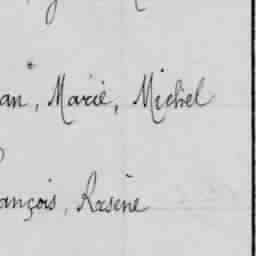 an, Marie, Michel
ançois, Arsène